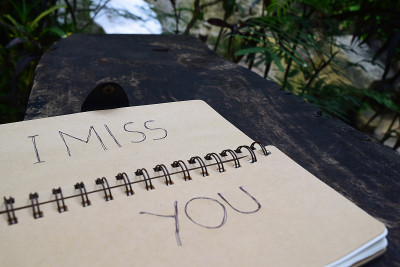 I MISS
YOU